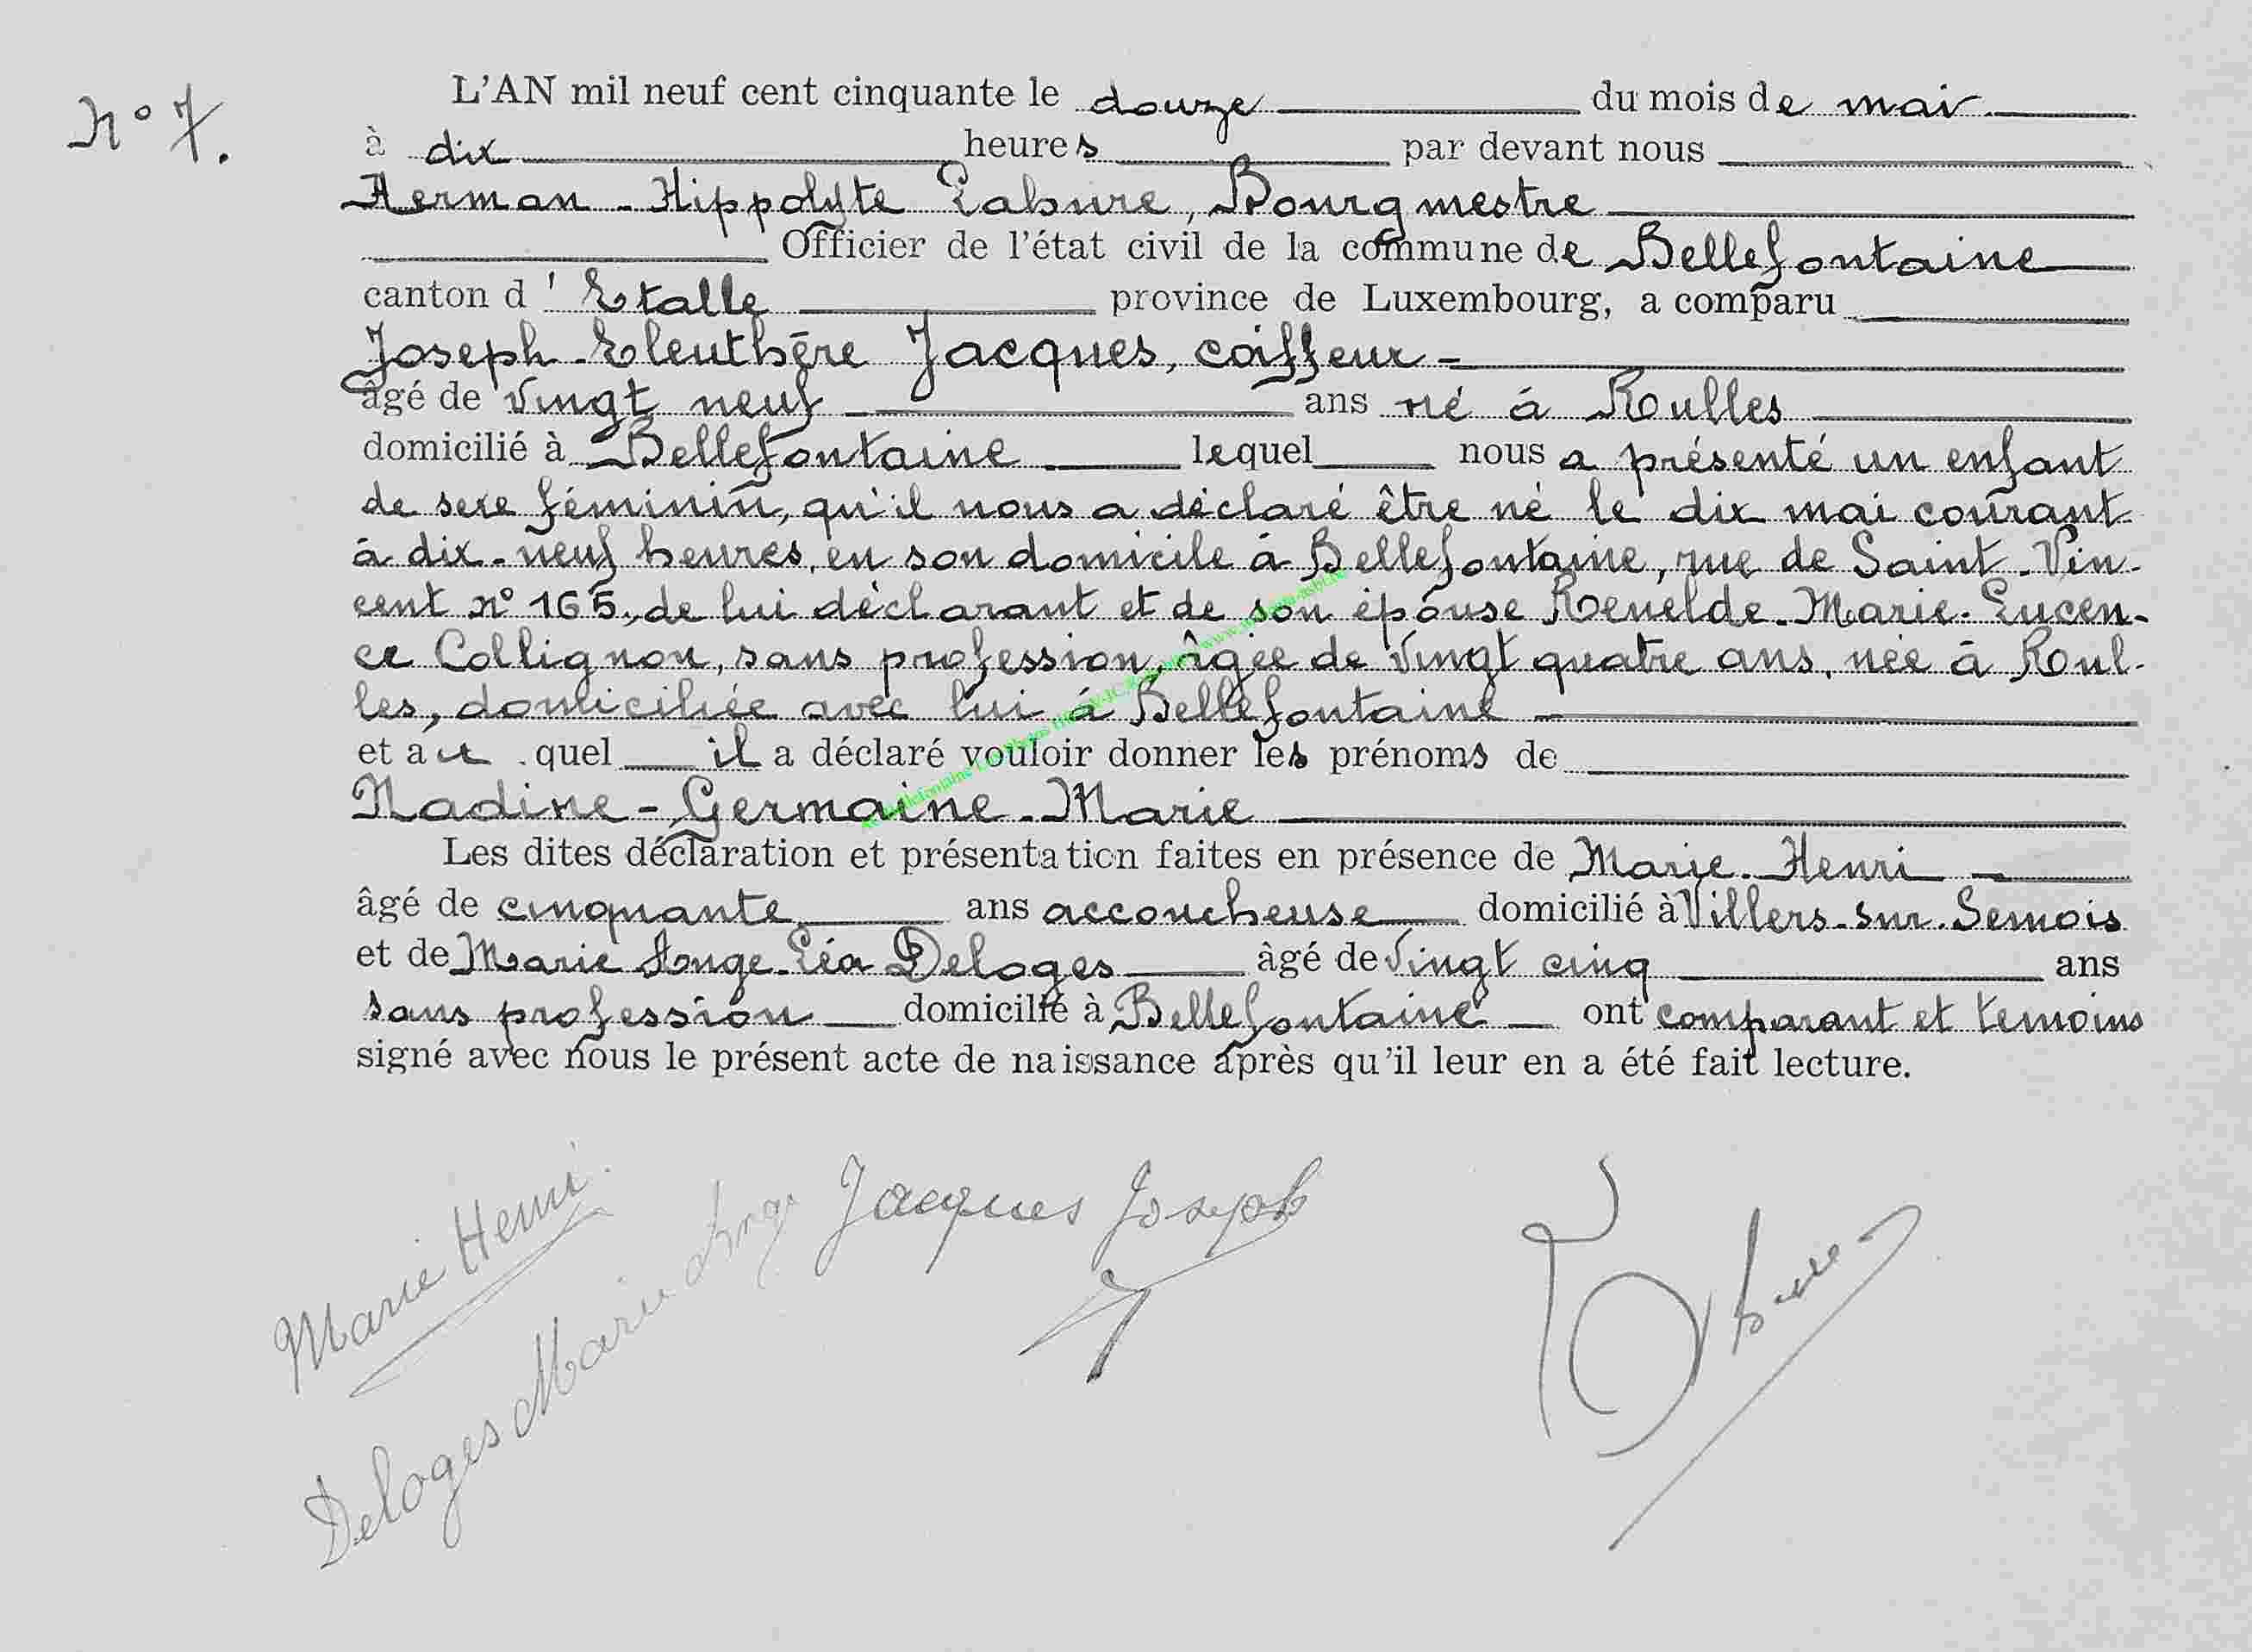 N° 7.
L'AN mil neuf cent cinquante le douze du mois de mai
à dix heures par devant nous
Herman-Hippolyte Labure, Bourgmestre
Officier de l'état civil de la commune de Bellefontaine
canton d' Etalle province de Luxembourg, a comparu
Joseph-Eleuthère Jacques, coiffeur
âgé de vingt neuf ans né à Rulles
domicilié à Bellefontaine lequel nous a présenté un enfant
de sexe féminin, qu'il nous a déclaré être né le dix mai courant
à dix-neuf heures, en son domicile à Bellefontaine, rue de Saint-Vin-
cent n° 165, de lui déclarant et de son épouse Renelde-Marie-Lucen-
ce Collignon, sans profession, âgée de vingt quatre ans, née à Rul-
les, domiciliée avec lui à Bellefontaine
et au quel il a déclaré vouloir donner les prénoms de
Nadine-Germaine-Marie
Les dites déclaration et présentation faites en présence de Marie-Henri
âgé de cinquante ans accoucheuse domicilié à Villers-sur-Semois
et de Marie Ange-Léa Deloges âgé de vingt cinq ans
sans profession domicilié à Bellefontaine ont comparant et temoins
signé avec nous le présent acte de naissance après qu'il leur en a été fait lecture.
Marie Henri
Deloges Marie Ange
Jacques Joseph